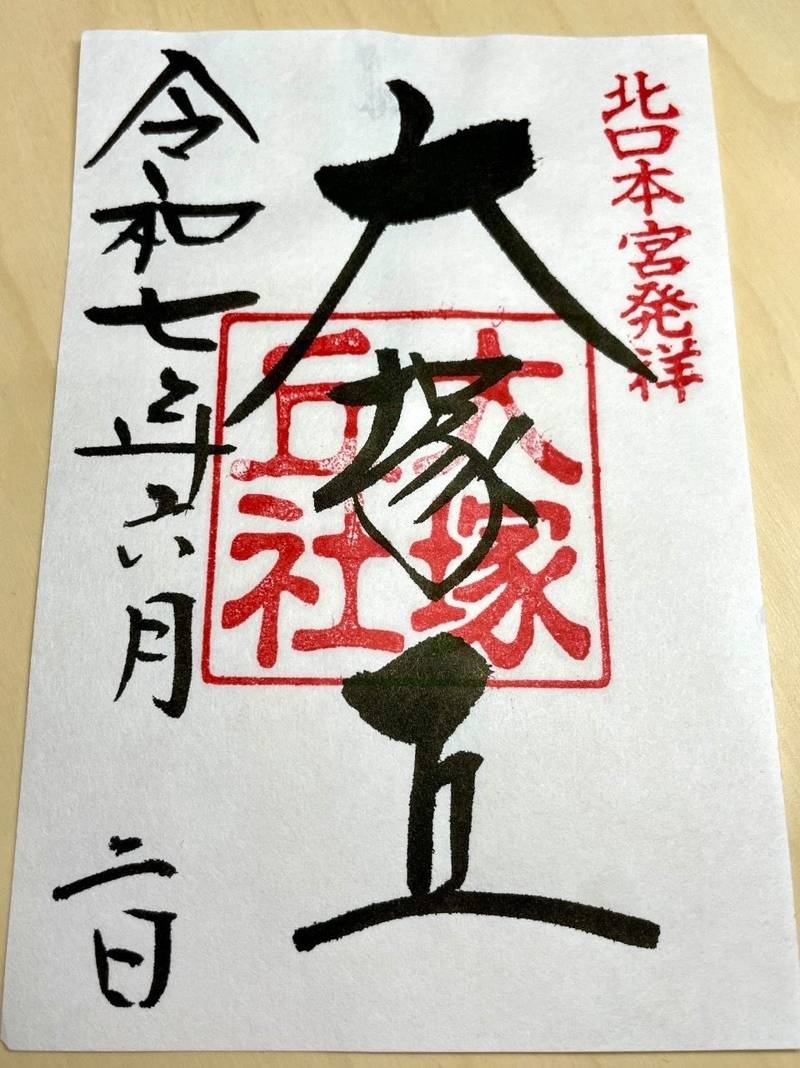 北口本宮発祥
大塚丘
大塚
丘社
令和七年六月二日